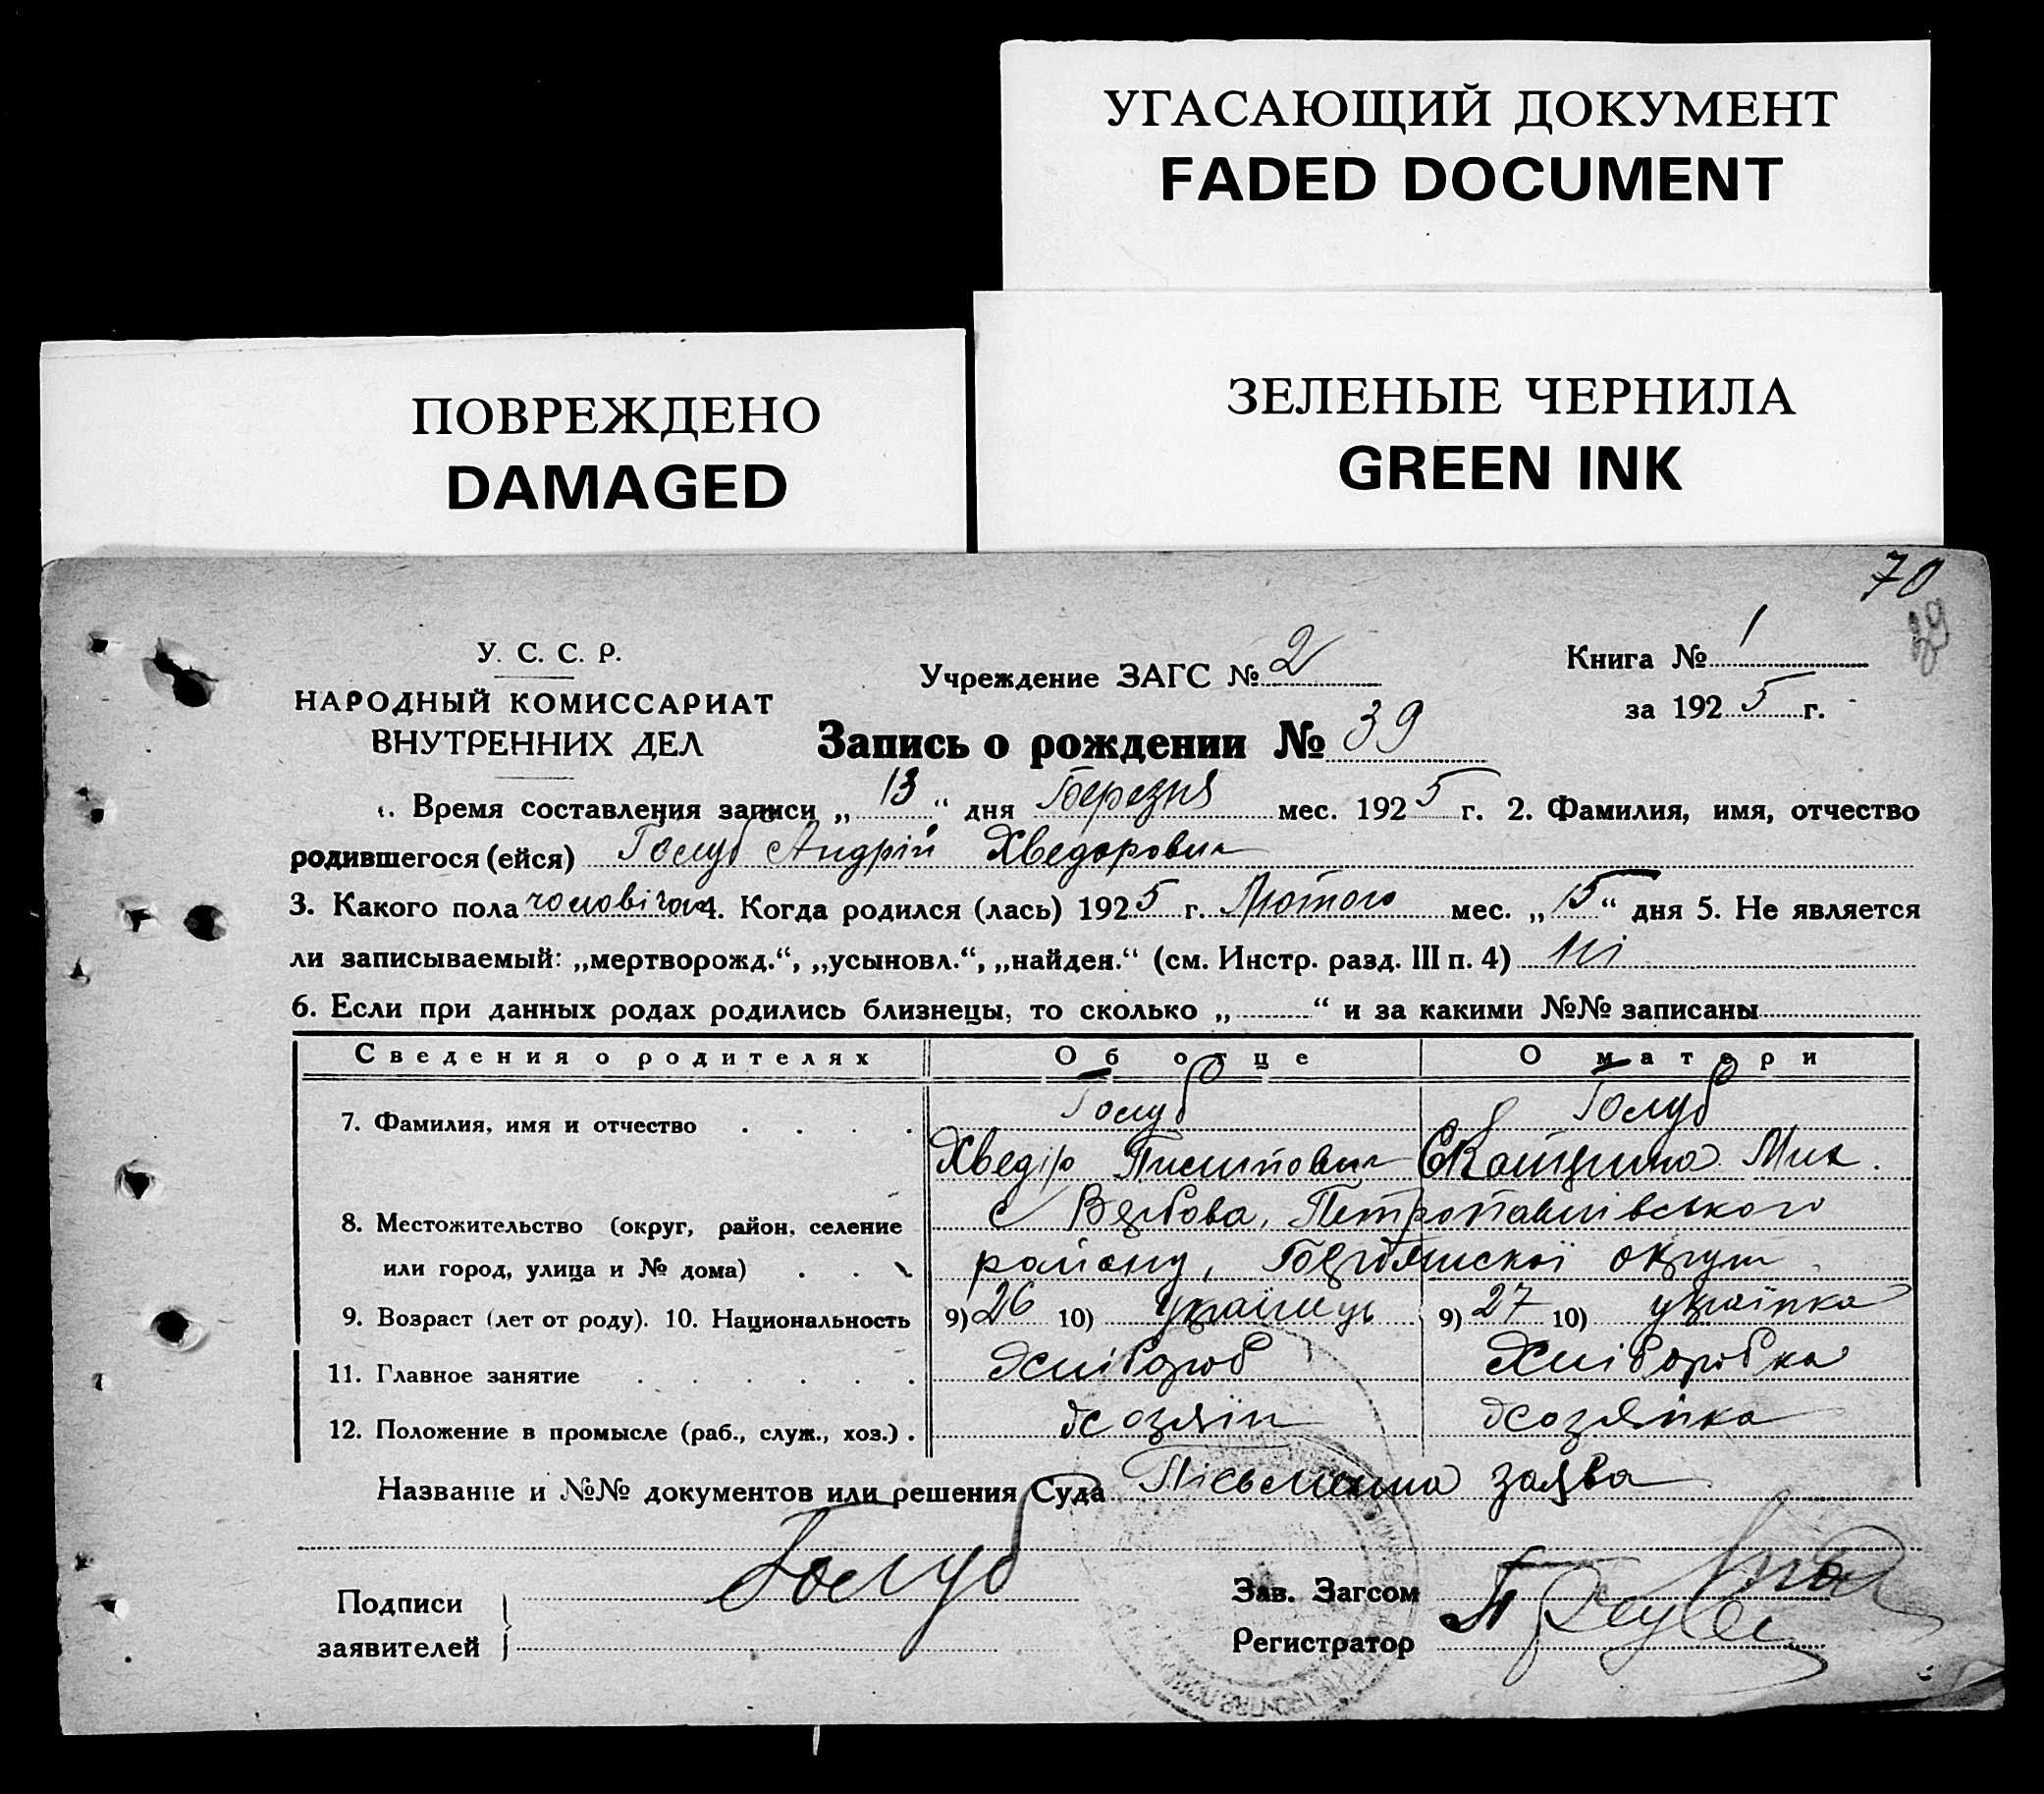 УГАСАЮЩИЙ ДОКУМЕНТ
FADED DOCUMENT
ПОВРЕЖДЕНО
DAMAGED
ЗЕЛЕНЫЕ ЧЕРНИЛА
GREEN INK
70
39
У. С. С. Р.
НАРОДНЫЙ КОМИССАРИАТ
ВНУТРЕННИХ ДЕЛ
Учреждение ЗАГС № 2
Книга № 1
за 1925 г.
Запись о рождении № 39
1. Время составления записи „13“ дня Березня мес. 1925 г. 2. Фамилия, имя, отчество
родившегося (ейся) Голуб Андрій Хведорович
3. Какого пола чоловічого 4. Когда родился (лась) 1925 г. Лютого мес. „15“ дня 5. Не является
ли записываемый: „мертворожд.“, „усыновл.“, „найден.“ (см. Инстр. разд. III п. 4) ні
6. Если при данных родах родились близнецы, то сколько „ “ и за какими №№ записаны
Сведения о родителях Об отце О матери
7. Фамилия, имя и отчество Голуб Голуб
Хведір Пилипович Катерина Мик.
8. Местожительство (округ, район, селение с Вербова, Петропавлівського
или город, улица и № дома) району, Бердянскої округи
9. Возраст (лет от роду). 10. Национальность 9) 26 10) українець 9) 27 10) українка
11. Главное занятие Хлібороб Хліборобка
12. Положение в промысле (раб., служ., хоз.) хозяїн хозяйка
Название и №№ документов или решения Суда Письменна заява
Подписи
заявителей
Голуб
Зав. Загсом
Регистратор